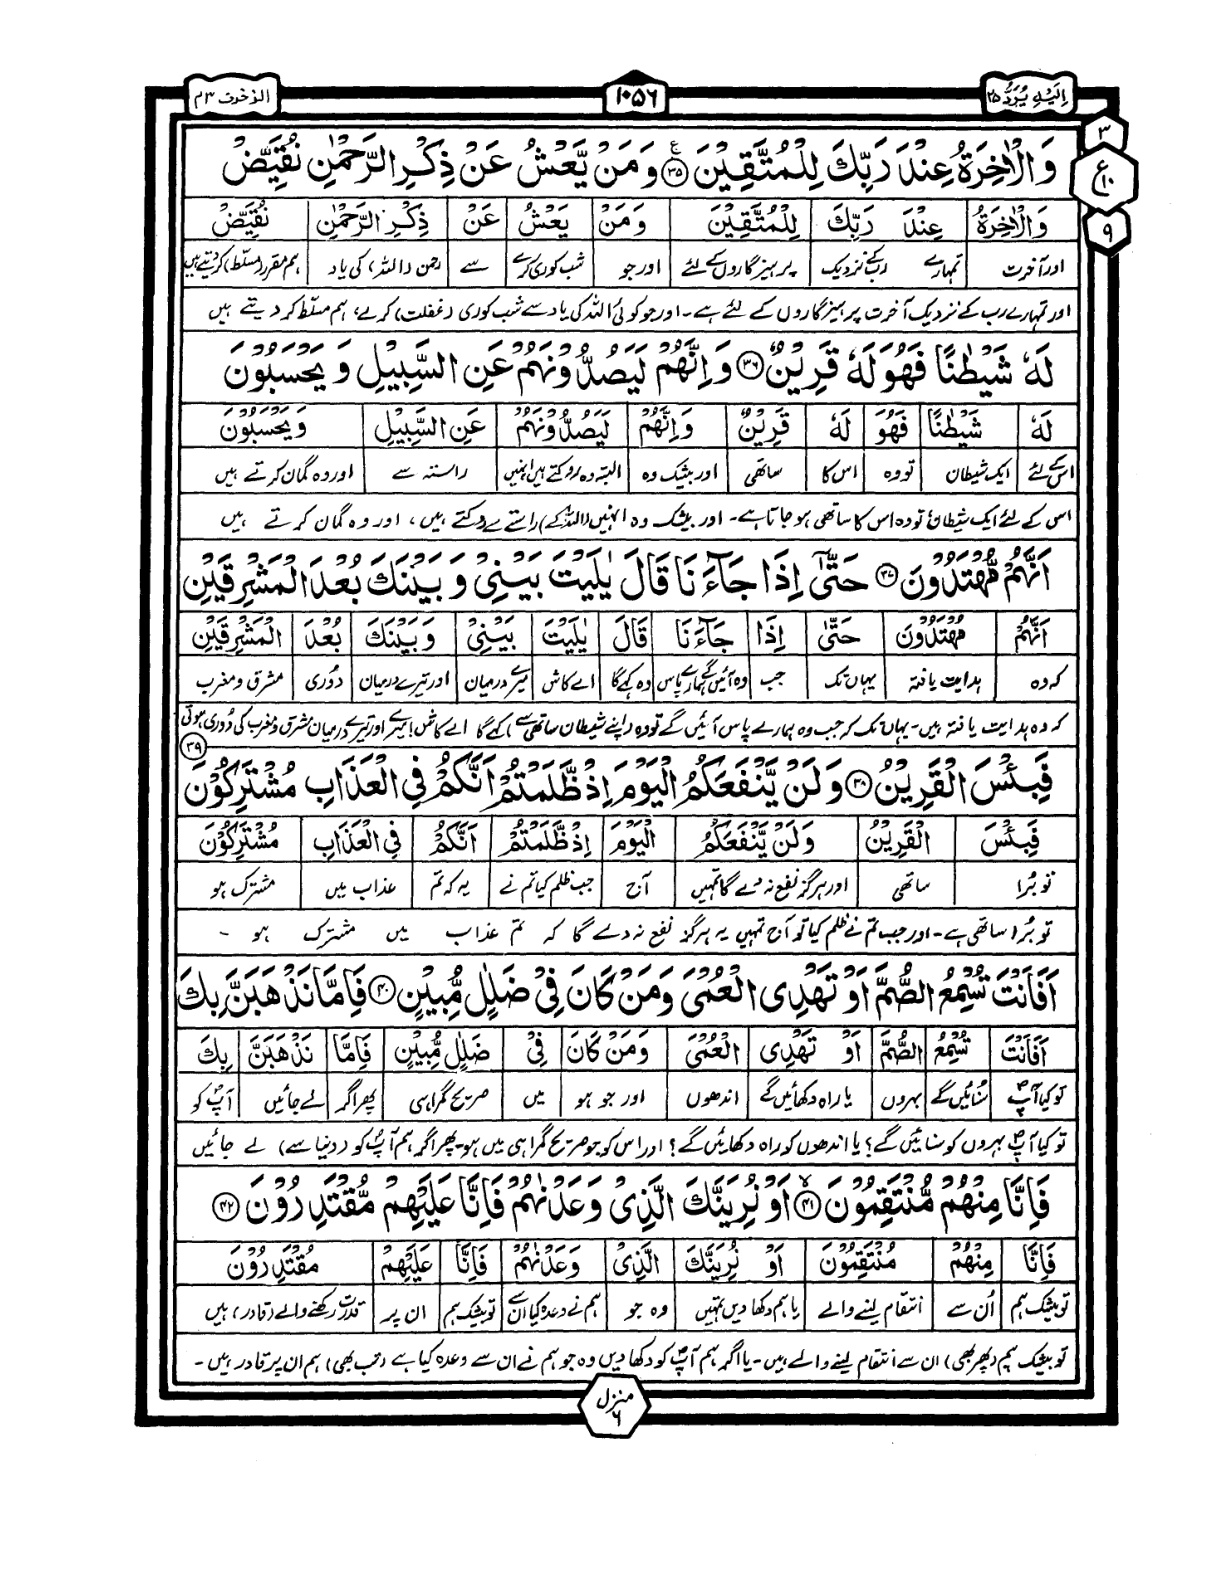 الزخرف ۴۳
۱۰۵۶
اِلَیْهِ یُرَدُّ ۲۵
۳
ع
۱۰
۹
وَالْاٰخِرَةُ عِنْدَ رَبِّكَ لِلْمُتَّقِیْنَ ۳۵ وَمَنْ یَّعْشُ عَنْ ذِكْرِ الرَّحْمٰنِ نُقَیِّضْ
وَالْاٰخِرَةُ عِنْدَ رَبِّكَ لِلْمُتَّقِیْنَ وَمَنْ یَعْشُ عَنْ ذِكْرِ الرَّحْمٰنِ نُقَیِّضْ
اور آخرت تمہارے رب کے نزدیک پرہیزگاروں کے لئے اور جو شب کوری کرے سے رحمن (اللہ) کی یاد ہم مقرر (مسلط) کردیتے ہیں
اور تمہارے رب کے نزدیک آخرت پرہیزگاروں کے لئے ہے۔ اور جو کوئی اللہ کی یاد سے شب کوری (غفلت) کرے، ہم مسلط کر دیتے ہیں
لَهٗ شَیْطٰنًا فَهُوَ لَهٗ قَرِیْنٌ ۳۶ وَاِنَّهُمْ لَیَصُدُّوْنَهُمْ عَنِ السَّبِیْلِ وَ یَحْسَبُوْنَ
لَهٗ شَیْطٰنًا فَهُوَ لَهٗ قَرِیْنٌ وَاِنَّهُمْ لَیَصُدُّوْنَهُمْ عَنِ السَّبِیْلِ وَیَحْسَبُوْنَ
اس کے لئے ایک شیطان تو وہ اس کا ساتھی اور بیشک وہ البتہ وہ روکتے ہیں انہیں راستہ سے اور وہ گمان کرتے ہیں
اس کے لئے ایک شیطان تو وہ اس کا ساتھی ہو جاتا ہے۔ اور بیشک وہ انہیں (اللہ کے) راستے سے روکتے ہیں، اور وہ گمان کرتے ہیں
اَنَّهُمْ مُّهْتَدُوْنَ ۳۷ حَتّٰۤی اِذَا جَآءَنَا قَالَ یٰلَیْتَ بَیْنِیْ وَ بَیْنَكَ بُعْدَ الْمَشْرِقَیْنِ
اَنَّهُمْ مُهْتَدُوْنَ حَتّٰی اِذَا جَآءَنَا قَالَ یٰلَیْتَ بَیْنِیْ وَبَیْنَكَ بُعْدَ الْمَشْرِقَیْنِ
کہ وہ ہدایت یافتہ یہاں تک جب وہ آئیں گے ہمارے پاس وہ کہے گا اے کاش میرے درمیان اور تیرے درمیان دُوری مشرق و مغرب
کہ وہ ہدایت یافتہ ہیں۔ یہاں تک کہ جب وہ ہمارے پاس آئیں گے تو وہ (اپنے شیطان ساتھی سے) کہے گا اے کاش! میرے اور تیرے درمیان مشرق و مغرب کی دُوری ہوتی
فَبِئْسَ الْقَرِیْنُ ۳۸ وَ لَنْ یَّنْفَعَكُمُ الْیَوْمَ اِذْ ظَّلَمْتُمْ اَنَّكُمْ فِی الْعَذَابِ مُشْتَرِكُوْنَ ۳۹
فَبِئْسَ الْقَرِیْنُ وَلَنْ یَّنْفَعَكُمُ الْیَوْمَ اِذْ ظَّلَمْتُمْ اَنَّكُمْ فِی الْعَذَابِ مُشْتَرِكُوْنَ
تو بُرا ساتھی اور ہرگز نفع نہ دے گا تمہیں آج جب ظلم کیا تم نے یہ کہ تم عذاب میں مشترک ہو
تو بُرا ساتھی ہے۔ اور جب تم نے ظلم کیا تو آج تمہیں یہ ہرگز نفع نہ دے گا کہ تم عذاب میں مشترک ہو ۔
اَفَاَنْتَ تُسْمِعُ الصُّمَّ اَوْ تَهْدِی الْعُمْیَ وَمَنْ كَانَ فِیْ ضَلٰلٍ مُّبِیْنٍ ۴۰ فَاِمَّا نَذْهَبَنَّ بِكَ
اَفَاَنْتَ تُسْمِعُ الصُّمَّ اَوْ تَهْدِی الْعُمْیَ وَمَنْ كَانَ فِیْ ضَلٰلٍ مُّبِیْنٍ فَاِمَّا نَذْهَبَنَّ بِكَ
تو کیا آپؐ سُنائیں گے بہروں یا راہ دکھائیں گے اندھوں اور جو ہو میں صریح گمراہی پھر اگر لے جائیں آپؐ کو
تو کیا آپؐ بہروں کو سنائیں گے؟ یا اندھوں کو راہ دکھائیں گے؟ اور اس کو جو صریح گمراہی میں ہو۔ پھر اگر ہم آپؐ کو (دنیا سے) لے جائیں
فَاِنَّا مِنْهُمْ مُّنْتَقِمُوْنَ ۴۱ اَوْ نُرِیَنَّكَ الَّذِیْ وَعَدْنٰهُمْ فَاِنَّا عَلَیْهِمْ مُّقْتَدِرُوْنَ ۴۲
فَاِنَّا مِنْهُمْ مُنْتَقِمُوْنَ اَوْ نُرِیَنَّكَ الَّذِیْ وَعَدْنٰهُمْ فَاِنَّا عَلَیْهِمْ مُقْتَدِرُوْنَ
تو بیشک ہم اُن سے انتقام لینے والے یا ہم دکھا دیں تمہیں وہ جو ہم نے وعدہ کیا اُن سے تو بیشک ہم ان پر قدرت رکھنے والے (قادر) ہیں
تو بیشک ہم (پھر بھی) ان سے انتقام لینے والے ہیں۔ یا اگر ہم آپؐ کو دکھا دیں وہ جو ہم نے ان سے وعدہ کیا ہے (تب بھی) ہم ان پر قادر ہیں۔
منزل ۶